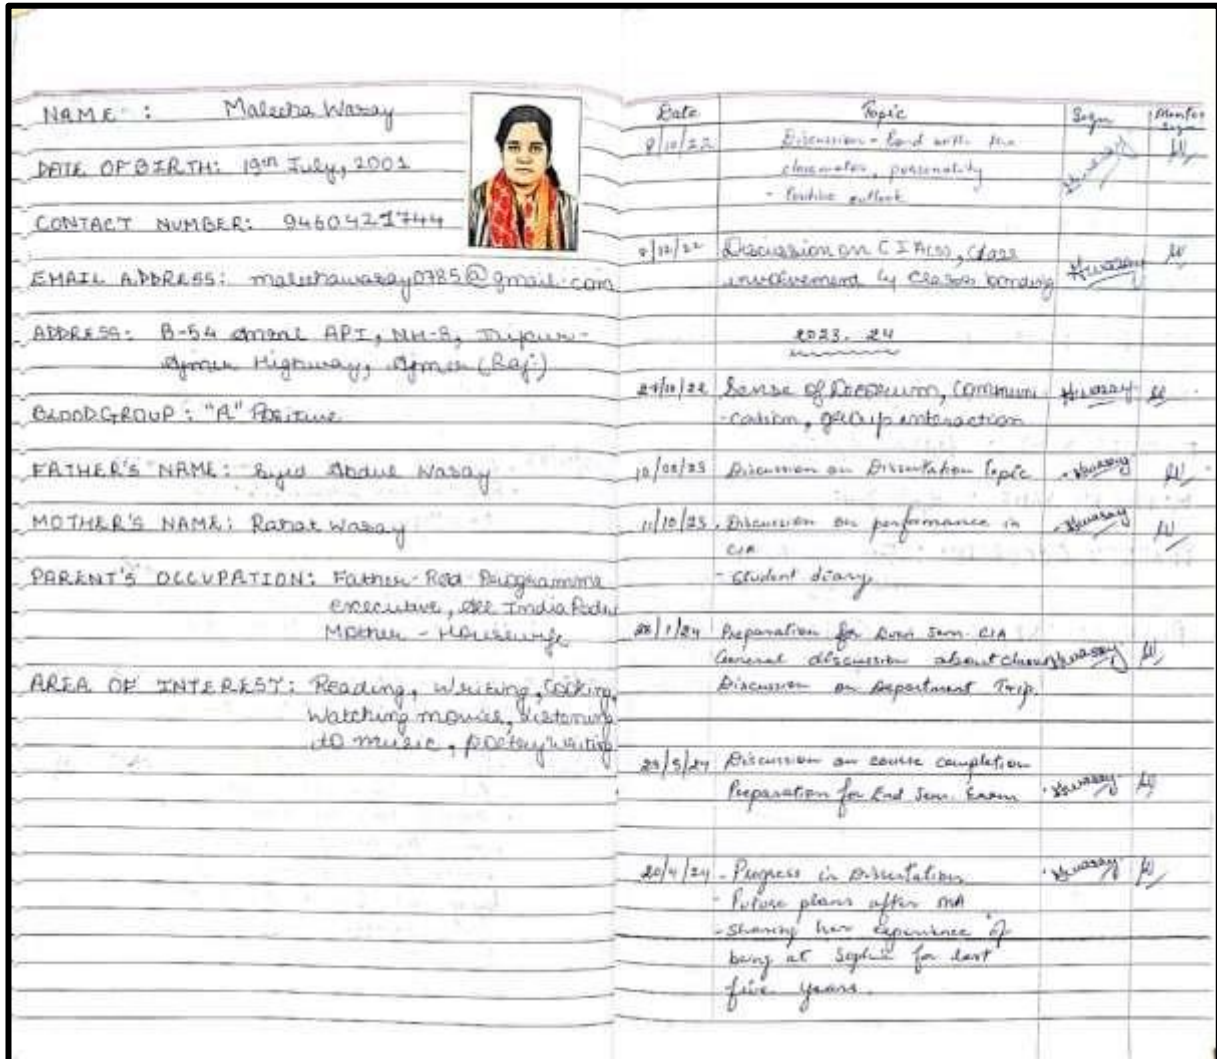 NAME : Maleeha Wasay
DATE OF BIRTH: 19th July, 2001
CONTACT NUMBER: 9460421744
EMAIL ADDRESS: maleehawasay0785@gmail.com
ADDRESS: B-54 API, NH-8,
Highway, Ajmer (Raj:)
BLOODGROUP: "A" Positive
FATHER'S NAME: Syed Abdul Wasay
MOTHER'S NAME: Rahat Wasay
PARENT'S OCCUPATION: Father- Programme
executive, All India Radio
Mother - Housewife
AREA OF INTEREST: Reading, Writing, Cooking,
Watching movies, listening
to music, poetry writing
Date Topic Sign Mentor Sign
Discussion - bond with the
classmates, personality
- Positive outlook
Discussion on CIA(s), Class
involvement & bonding
2023-24
Sense of Decorum, Communi
-cation, group interaction
Discussion on Dissertation Topic
11/10/23 Discussion on performance in
CIA
- Student diary
Preparation for Sem. CIA
General discussion about
Discussion on Department Trip.
Discussion on course completion
Preparation for End Sem. Exam
20/4/24 - Progress in Dissertation
- Future plans after MA
- Sharing her experience of
being at Sophia for last
five years.